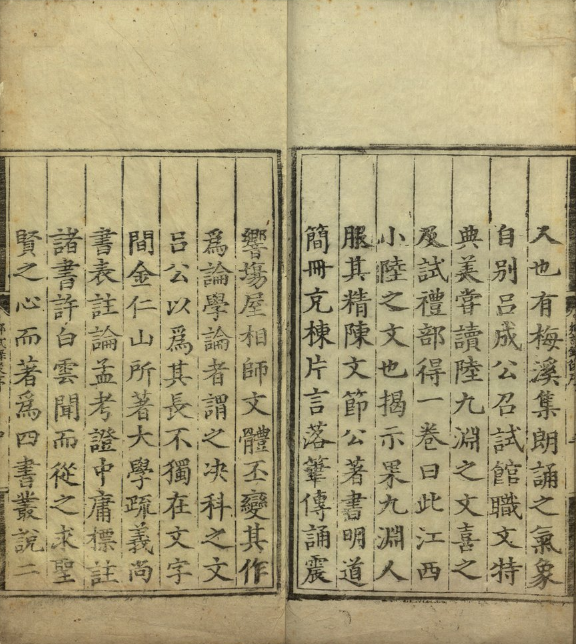 又也有梅溪集朗誦之氣象
自别吕成公召試館職文特
典羙甞讀陸九淵之文喜之
及試禮部得一巻曰此江西
小陸之文也揭示果九淵人
服其精陳文節公著書明道
簡冊充棟片言落筆傳誦震
響塲屋相師文體丕變其作
爲論學論者謂之决科之文
吕公以爲其長不獨在文字
間金仁山所著大學疏義尚
書表註論孟考證中庸標註
諸書許白雲聞而從之求聖
賢之心而著爲四書叢說二